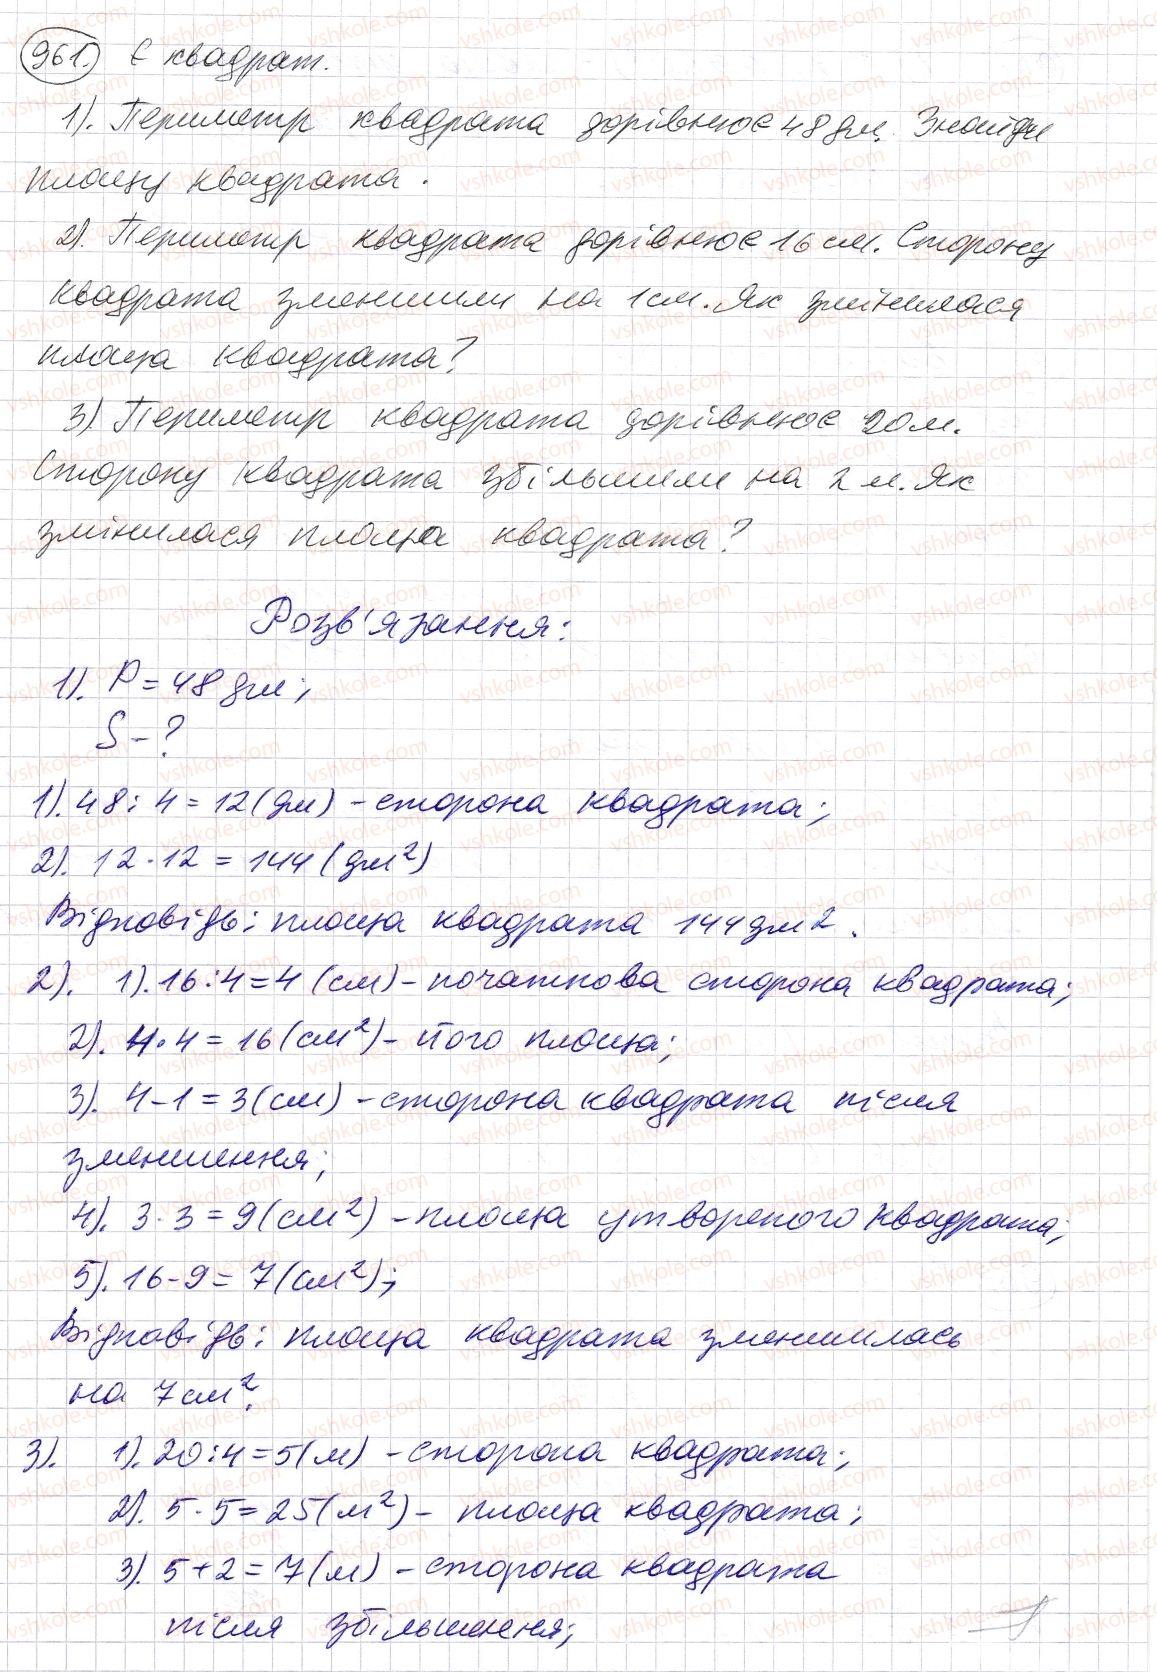 961. Є квадрат.
1). Периметр квадрата дорівнює 48 дм. Знайди
площу квадрата.
2). Периметр квадрата дорівнює 16 см. Сторону
квадрата зменшили на 1 см. Як змінилася
площа квадрата?
3) Периметр квадрата дорівнює 20 м.
Сторону квадрата збільшили на 2 м. Як
змінилася площа квадрата?
Розв'язання:
1). P = 48 дм;
S - ?
1). 48 : 4 = 12 (дм) - сторона квадрата;
2). 12 · 12 = 144 (дм²)
Відповідь: площа квадрата 144 дм².
2). 1). 16 : 4 = 4 (см) - початкова сторона квадрата;
2). 4 · 4 = 16 (см²) - його площа;
3). 4 - 1 = 3 (см) - сторона квадрата після
зменшення;
4). 3 · 3 = 9 (см²) - площа утвореного квадрата;
5). 16 - 9 = 7 (см²);
Відповідь: площа квадрата зменшилась
на 7 см².
3). 1). 20 : 4 = 5 (м) - сторона квадрата;
2). 5 · 5 = 25 (м²) - площа квадрата;
3). 5 + 2 = 7 (м) - сторона квадрата
після збільшення;
vshkole.com